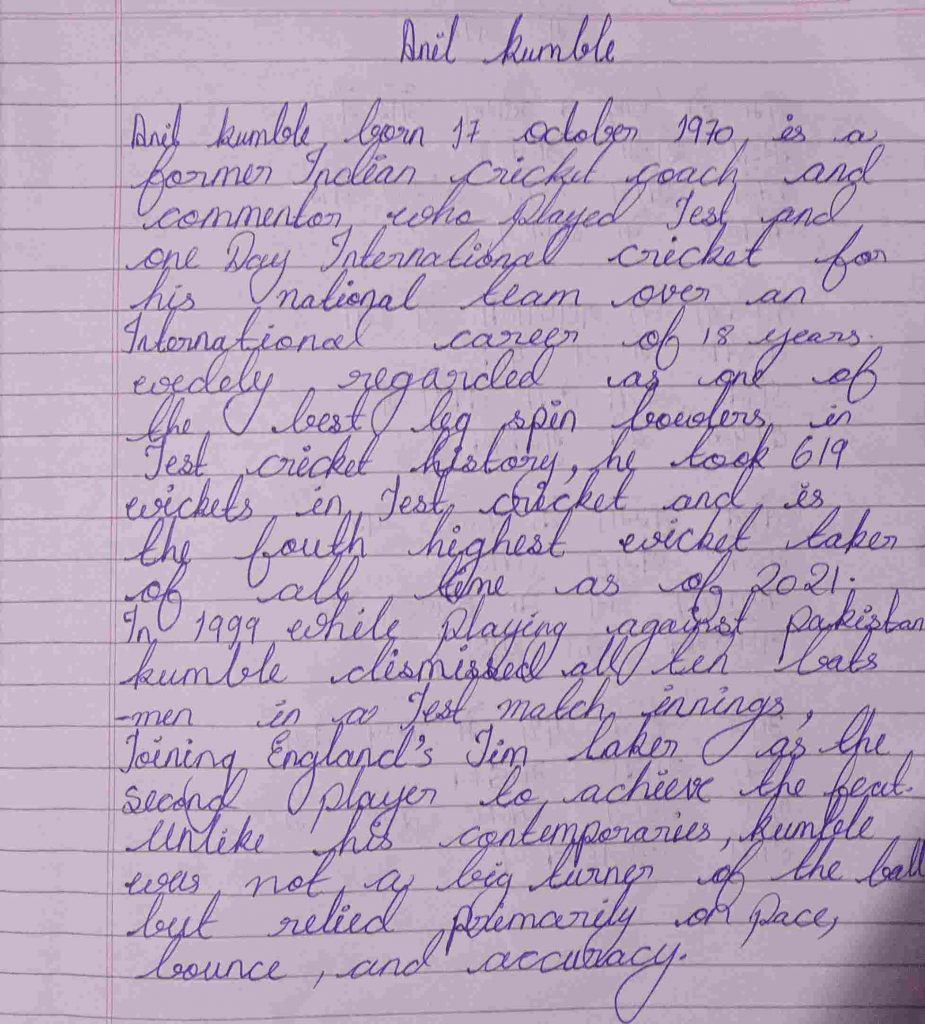 Anil kumble
Anil kumble, born 17 october 1970, is a
former Indian cricket coach and
commentor, who played Test and
one Day International cricket for
his national team over an
International career of 18 years.
widely regarded as one of
the best leg spin bowlers in
Test cricket history, he took 619
wickets in Test cricket and is
the fouth highest wicket taker
of all time as of 2021.
In 1999 while playing against pakistan
kumble dismissed all ten bats
-men in a Test match innings,
Joining England's Jim laker as the
second player to achieve the feat.
Unlike his contemporaries, kumble
was not a big turner of the ball
but relied primarily on pace,
bounce, and accuracy.